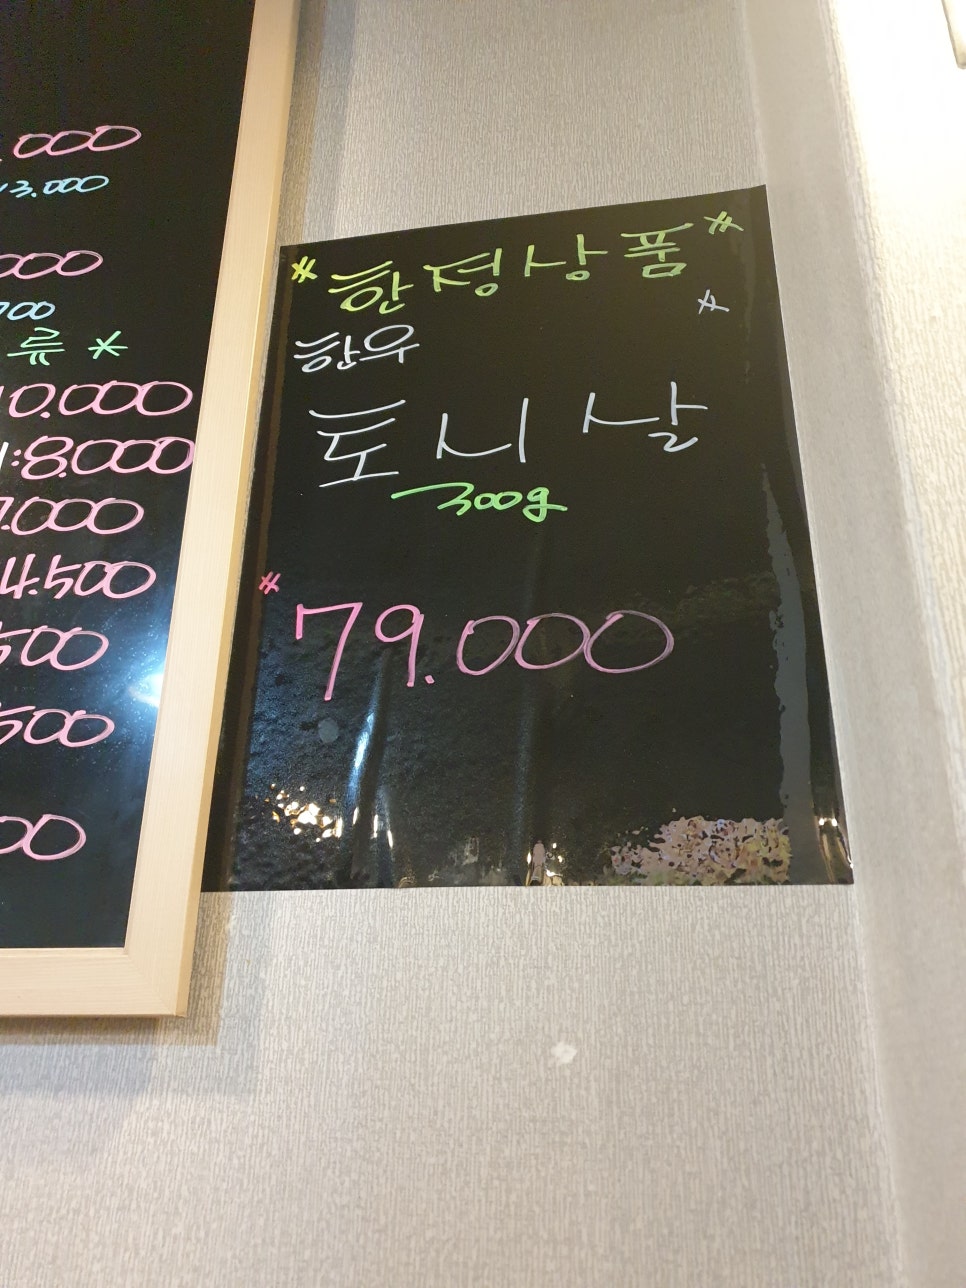 000
3.000
000
700
류 *
10.000
1:8.000
7.000
4.500
500
500
00
* 한정상품 *
*
한우
토시살
300g
* 79.000